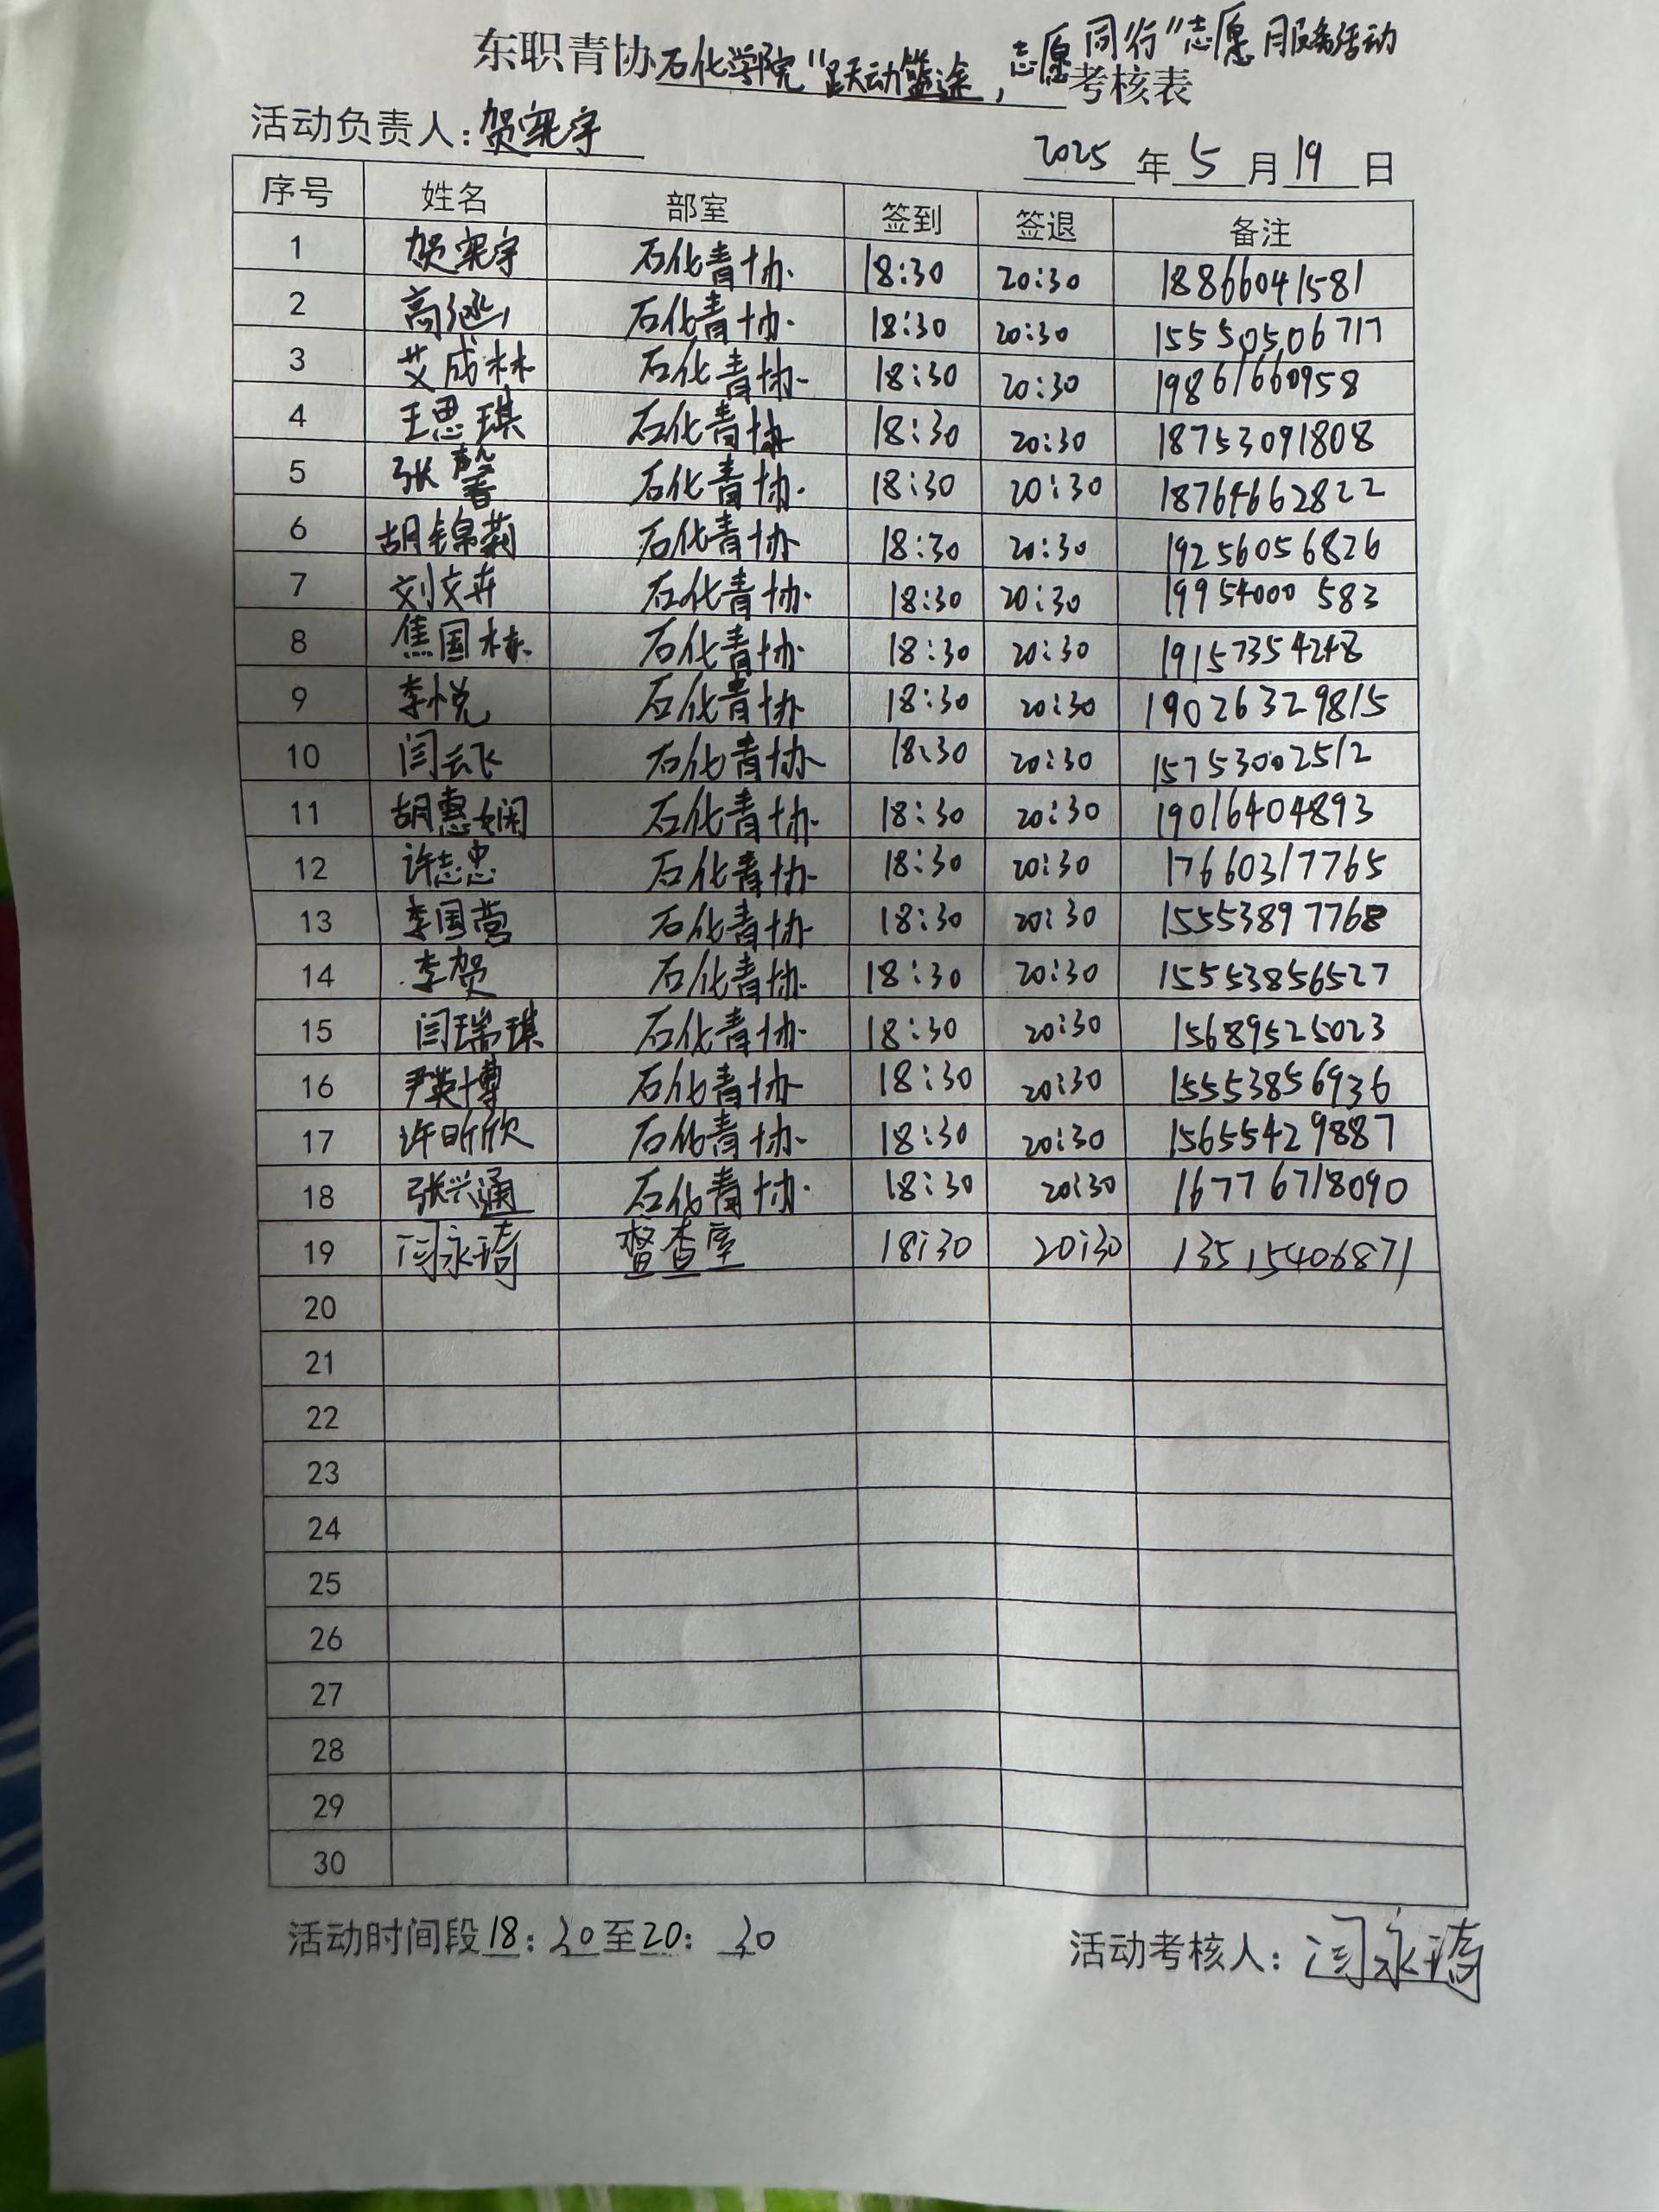 东职青协石化学院"跃动篮途，志愿同行"志愿服务活动考核表
活动负责人：贺梁宇
2025年5月19日
序号 姓名 部室 签到 签退 备注
1 贺梁宇 石化青协 18:30 20:30 18866041581
2 高 石化青协 18:30 20:30 15550506717
3 艾成林 石化青协 18:30 20:30 19861660958
4 王思琪 石化青协 18:30 20:30 18753091808
5 张馨 石化青协 18:30 20:30 18764662822
6 胡锦菊 石化青协 18:30 20:30 19256056826
7 刘文卉 石化青协 18:30 20:30 19954000583
8 焦国栋 石化青协 18:30 20:30 19157354248
9 李悦 石化青协 18:30 20:30 19026329815
10 闫云飞 石化青协 18:30 20:30 15753002512
11 胡惠娴 石化青协 18:30 20:30 19016404893
12 许志忠 石化青协 18:30 20:30 17660317765
13 李国营 石化青协 18:30 20:30 15553897768
14 李贺 石化青协 18:30 20:30 15553856527
15 闫瑞琪 石化青协 18:30 20:30 15689525023
16 尹英博 石化青协 18:30 20:30 15553856936
17 许昕欣 石化青协 18:30 20:30 15655429887
18 张兴通 石化青协 18:30 20:30 16776718090
19 闫永琦 督查室 18:30 20:30 13515406871
20
21
22
23
24
25
26
27
28
29
30
活动时间段18：30至20：30
活动考核人：闫永琦